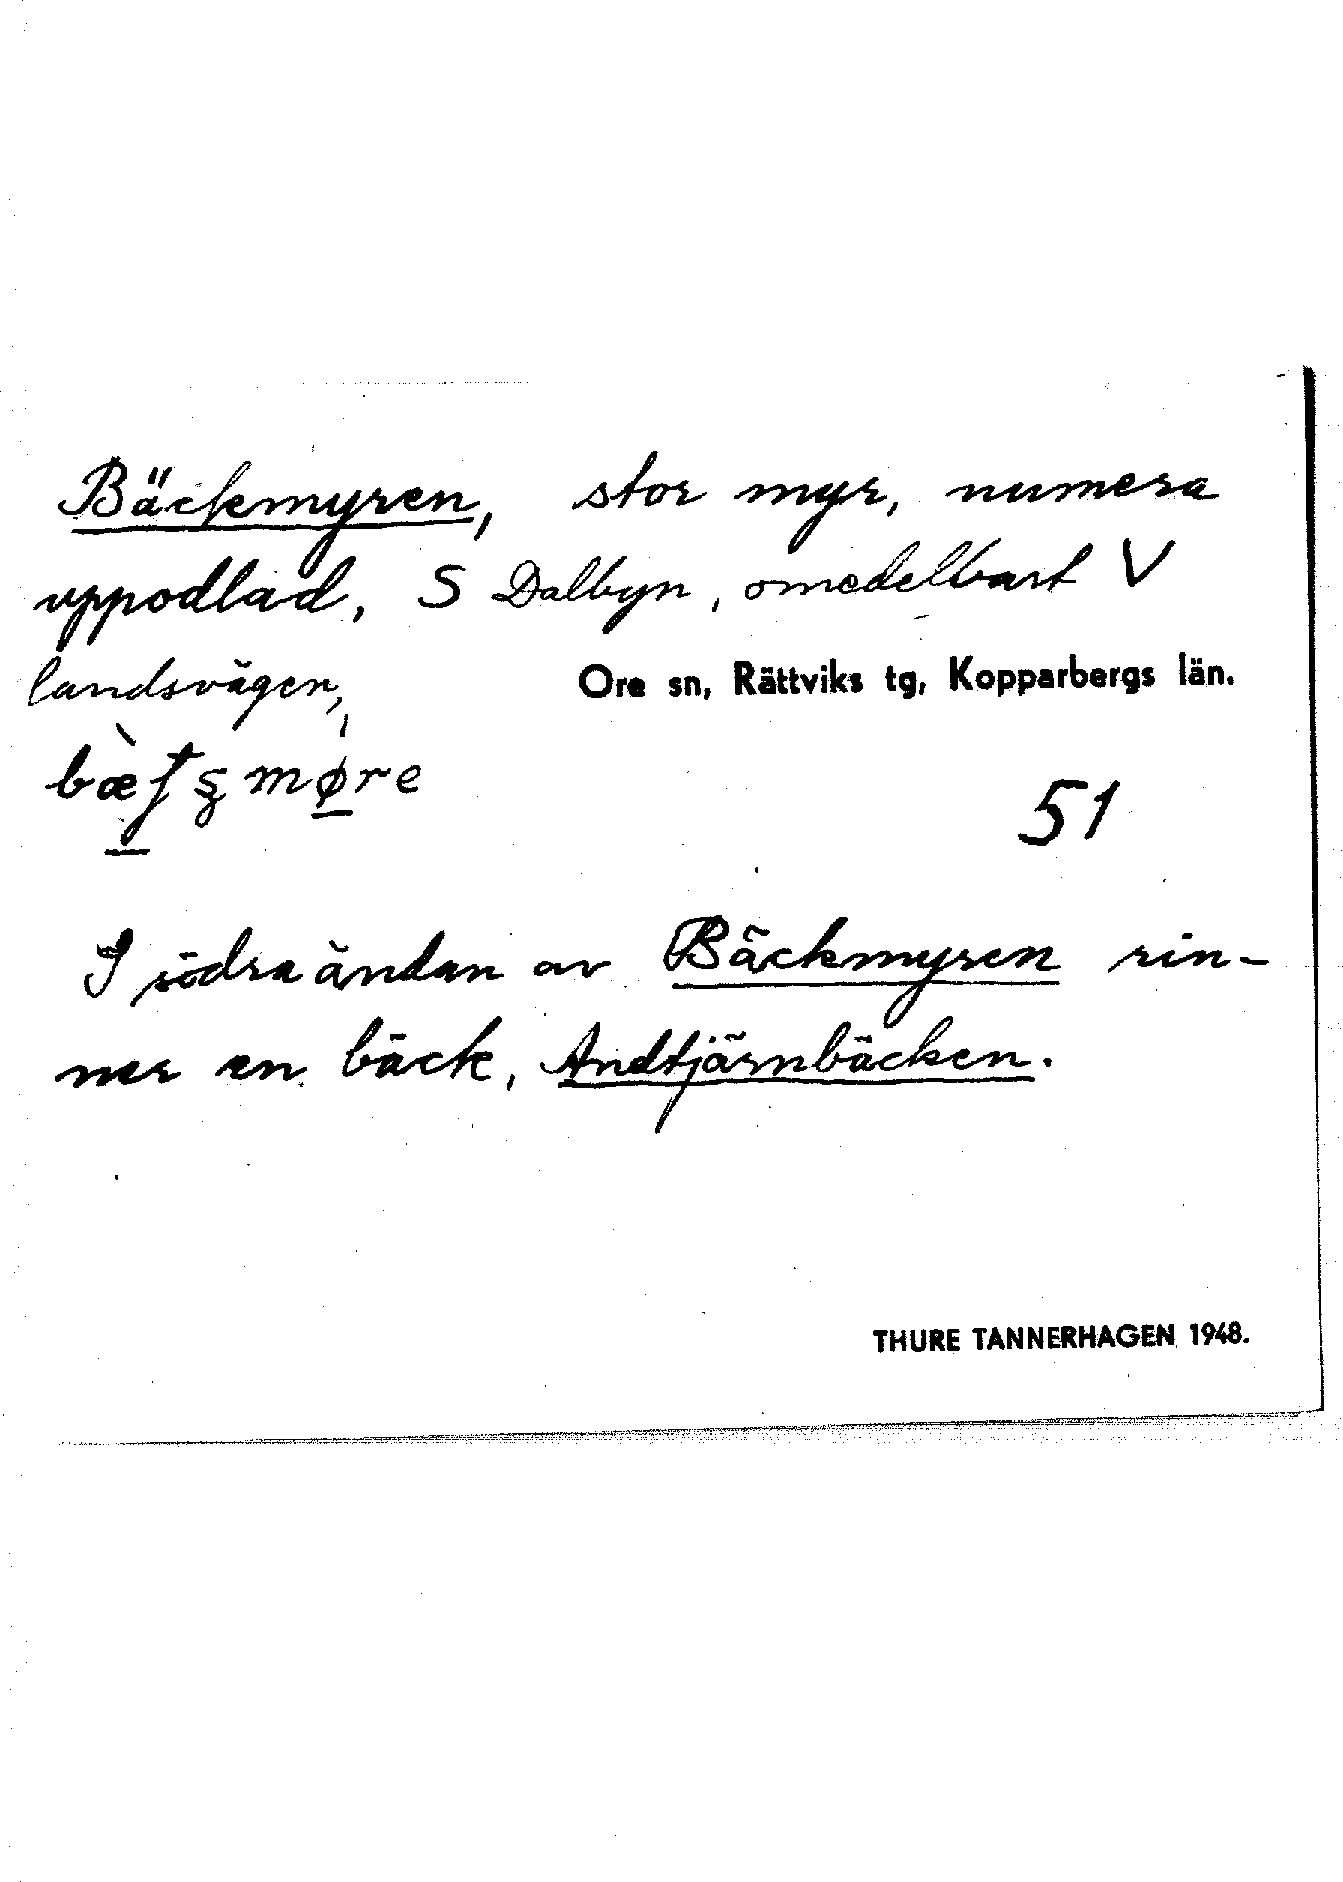 Bäckmyren, stor myr, numera
uppodlad, S Dalbyn, omedelbart V
landsvägen,
Ore sn, Rättviks tg, Kopparbergs län.
51
I södra ändan av Bäckmyren rin-
ner en bäck, Andtjärnbäcken.
THURE TANNERHAGEN 1948.